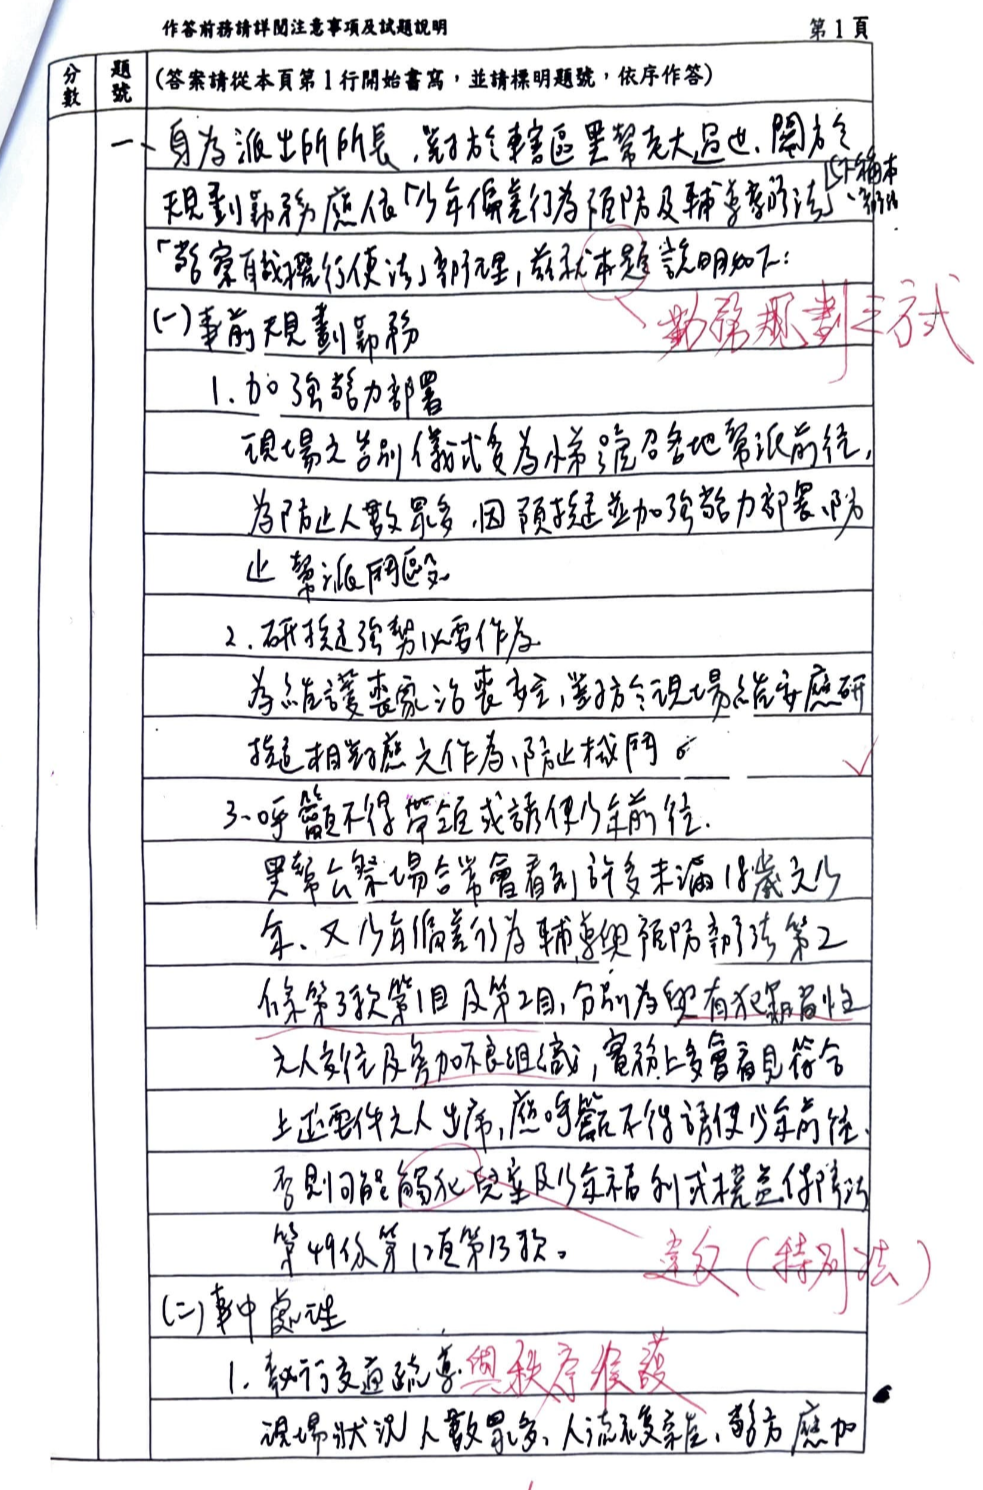 作答前務請詳閱注意事項及試題說明
第1頁
分數
題號
(答案請從本頁第1行開始書寫，並請標明題號，依序作答)
一、身為派出所所長，對於轄區黑幫老大過世，關於
規劃勤務應依「少年偏差行為預防及輔導辦法」、
「警察職權行使法」辦理，茲就本題說明如下：
勤務規劃之方式
(一)事前規劃勤務
1.加強警力部署
現場之告別儀式多為小弟號召各地幫派前往，
為防止人數眾多，因預擬並加強警力部署，防
止幫派鬥毆
2.研擬強勢必要作為
為維護喪家治喪安全，對於現場維安應研
擬相對應之作為，防止械鬥。
3.呼籲不得帶領或誘使少年前往.
黑幫公祭場合常會看到許多未滿18歲之少
年、又少年偏差行為輔導與預防辦法第2
條第3款第1目及第2目，分別為與有犯罪習性
之人交往及參加不良組織，實務上多會看見符合
上述要件之人出席，應呼籲不得誘使少年前往，
否則可能觸犯兒童及少年福利或權益保障法
第49條第1項第15款。
違反(特別法)
(二)事中處理
1.執行交通疏導與秩序維護
現場狀況人數眾多、人流複雜，警方應加